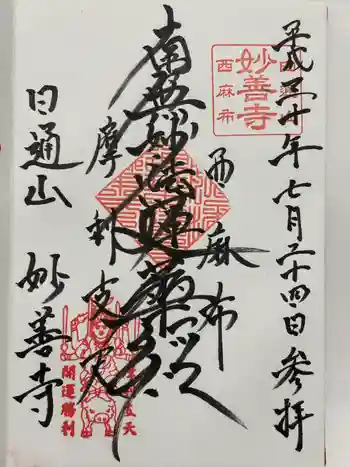 平成三十年七月二十四日参拝
妙善寺
西麻布
西麻布
南無妙法蓮華経
摩利支天
日通山 妙善寺
開運勝利